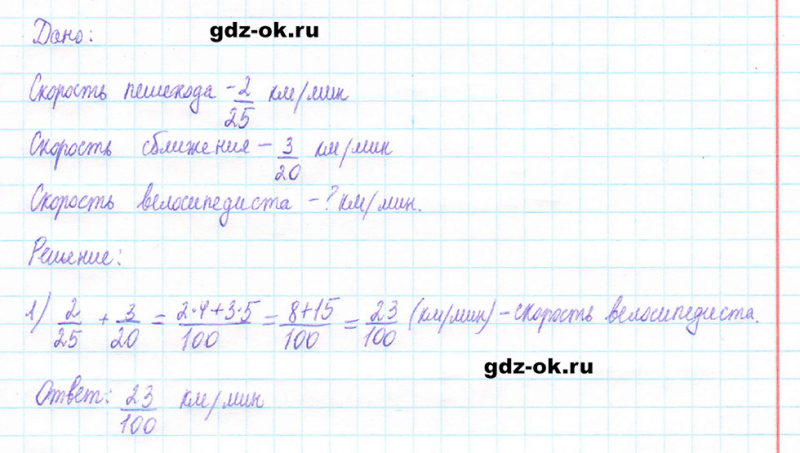 gdz-ok.ru
Дано:
Скорость пешехода - 2/25 км/мин
Скорость сближения - 3/20 км/мин
Скорость велосипедиста - ? км/мин.
Решение:
1) 2/25 + 3/20 = 2·4+3·5/100 = 8+15/100 = 23/100 (км/мин) - скорость велосипедиста.
gdz-ok.ru
Ответ: 23/100 км/мин